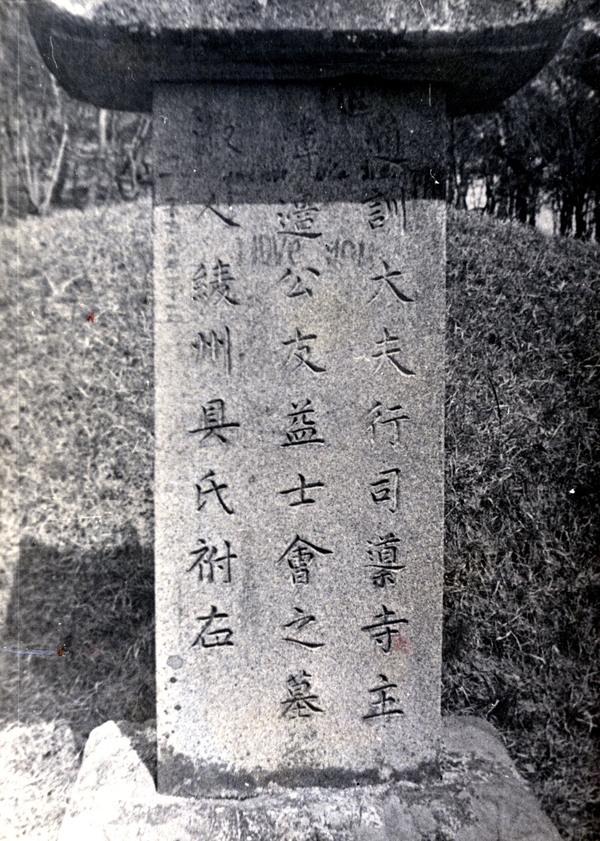 通訓大夫行司䆃寺主
公友益士會之墓
淑人綾州具氏祔右
I love you